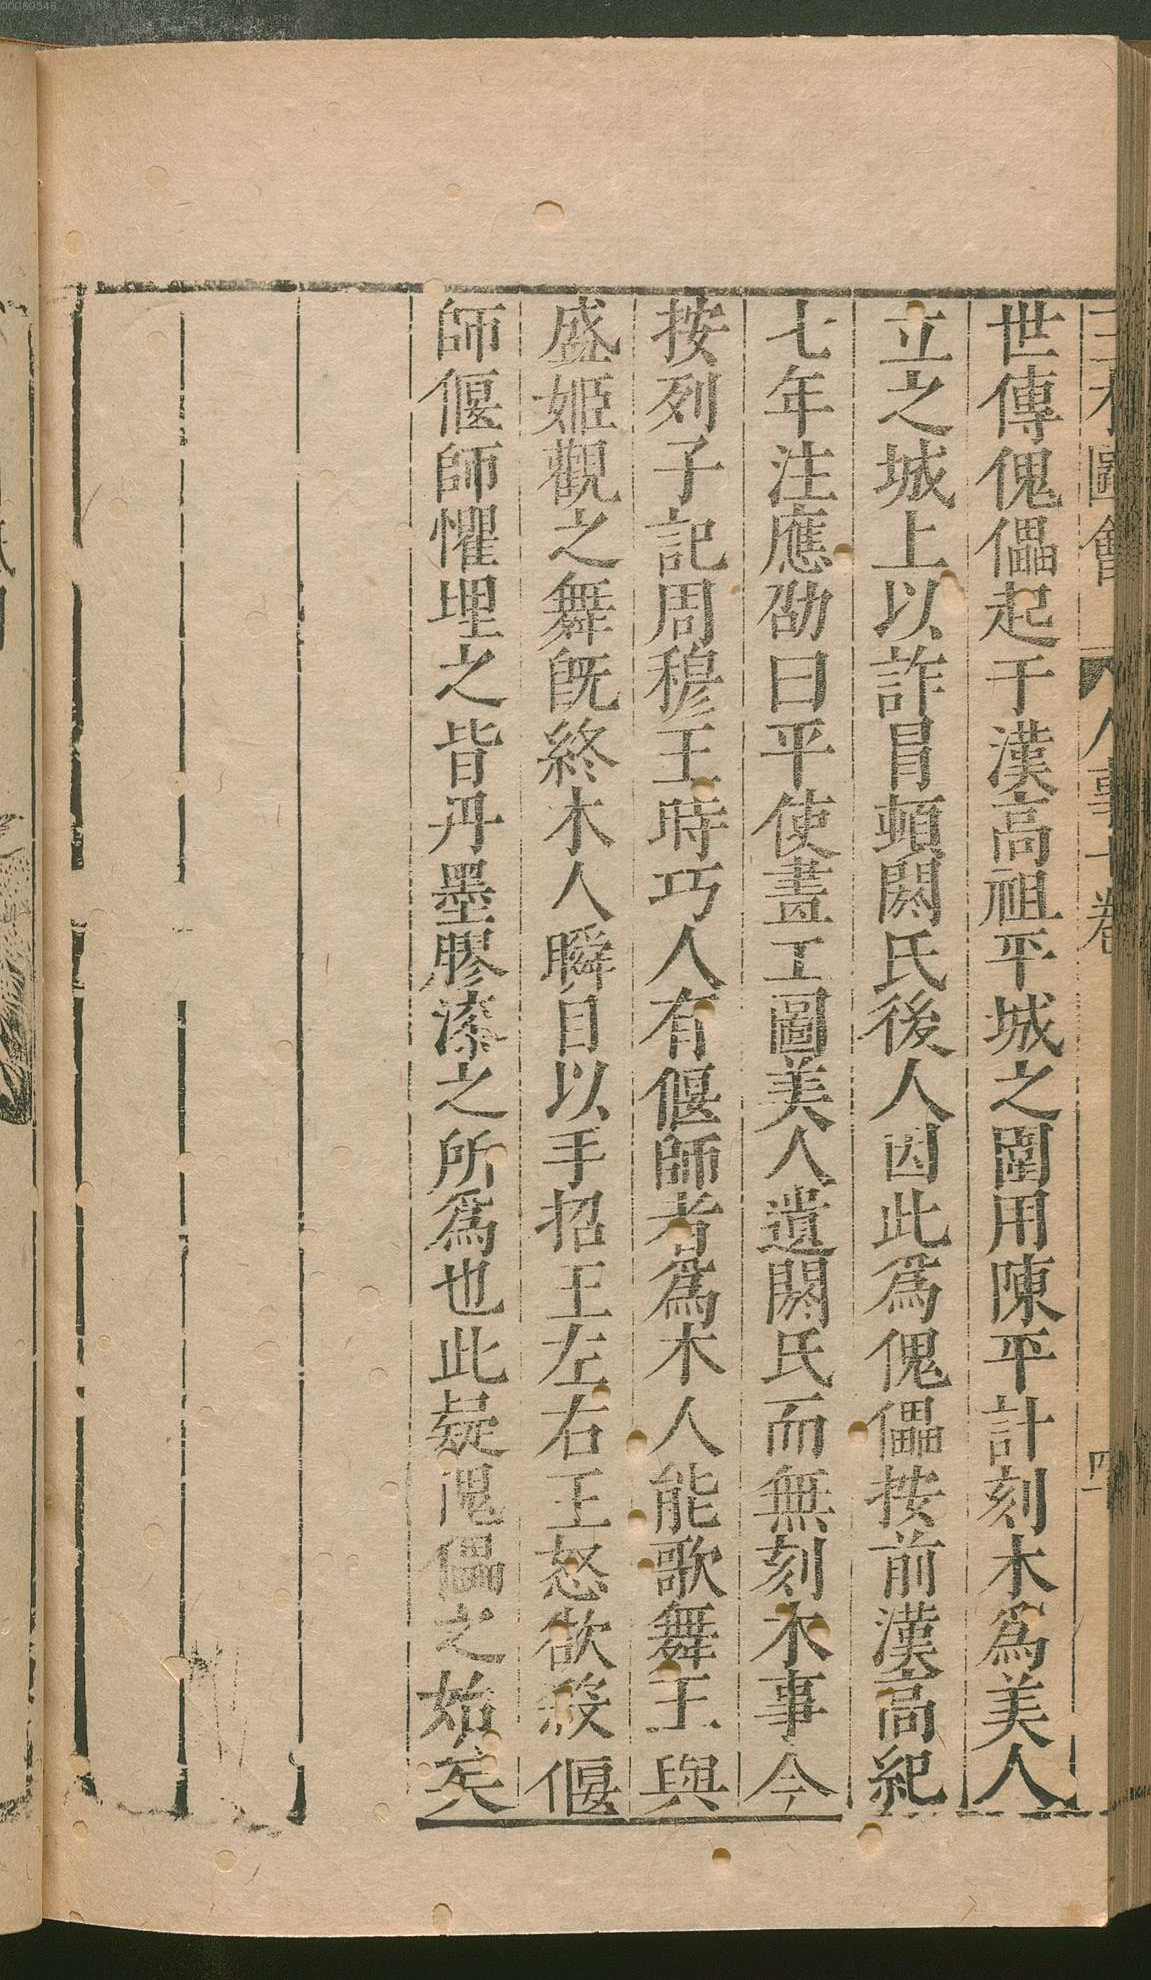 世傳傀儡起于漢高祖平城之圍用陳平計刻木爲美人
立之城上以詐冒頓閼氏後人因此爲傀儡按前漢高紀
七年注應劭曰平使畫工圖美人遺閼氏而無刻木事今
按列子記周穆王時巧人有偃師者爲木人能歌舞王與
盛姬觀之舞旣終木人瞬目以手招王左右王怒欲殺偃
師偃師懼埋之皆丹墨膠漆之所爲也此疑傀儡之始矣
圖會 人事十卷
00060346